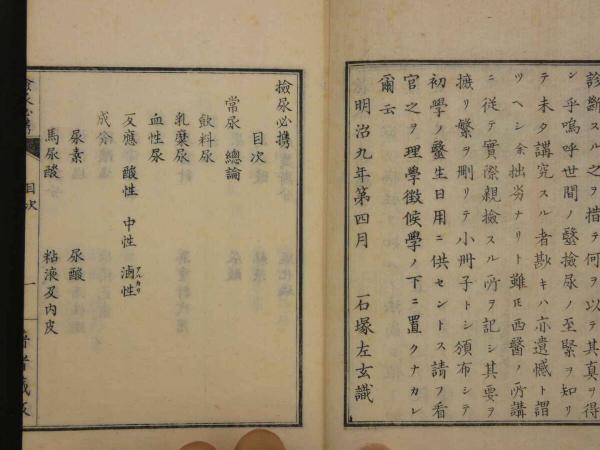 診斷スル之ヲ措テ何ヲ以テ其真ヲ得
ン乎嗚呼世間ノ毉撿尿ノ至緊ヲ知リ
テ未タ講究スル者尠キハ亦遺憾ト謂
ツヘシ余拙劣ナリト雖𪜈西醫ノ所講
ニ従テ實際親撿スル所ヲ記シ其要ヲ
摭リ繁ヲ刪リテ小冊子トシ頒布シテ
初學ノ毉生日用ニ供セントス請フ看
官之ヲ理學徴候學ノ下ニ置クナカレ
爾云
明治九年第四月 石塚左玄識
撿尿必携
目次
常尿 總論
飲料尿
乳糜尿
血性尿
反應 酸性 中性 滷性
アルカリ
成分
尿素 尿酸
馬尿酸 粘液及内皮
撿尿必携 目次 一 著者藏版